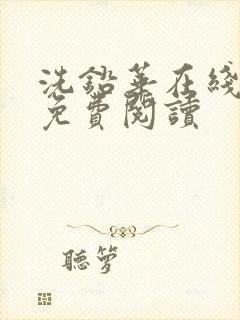 洗鉛華在綫
免費閱讀
聽夢